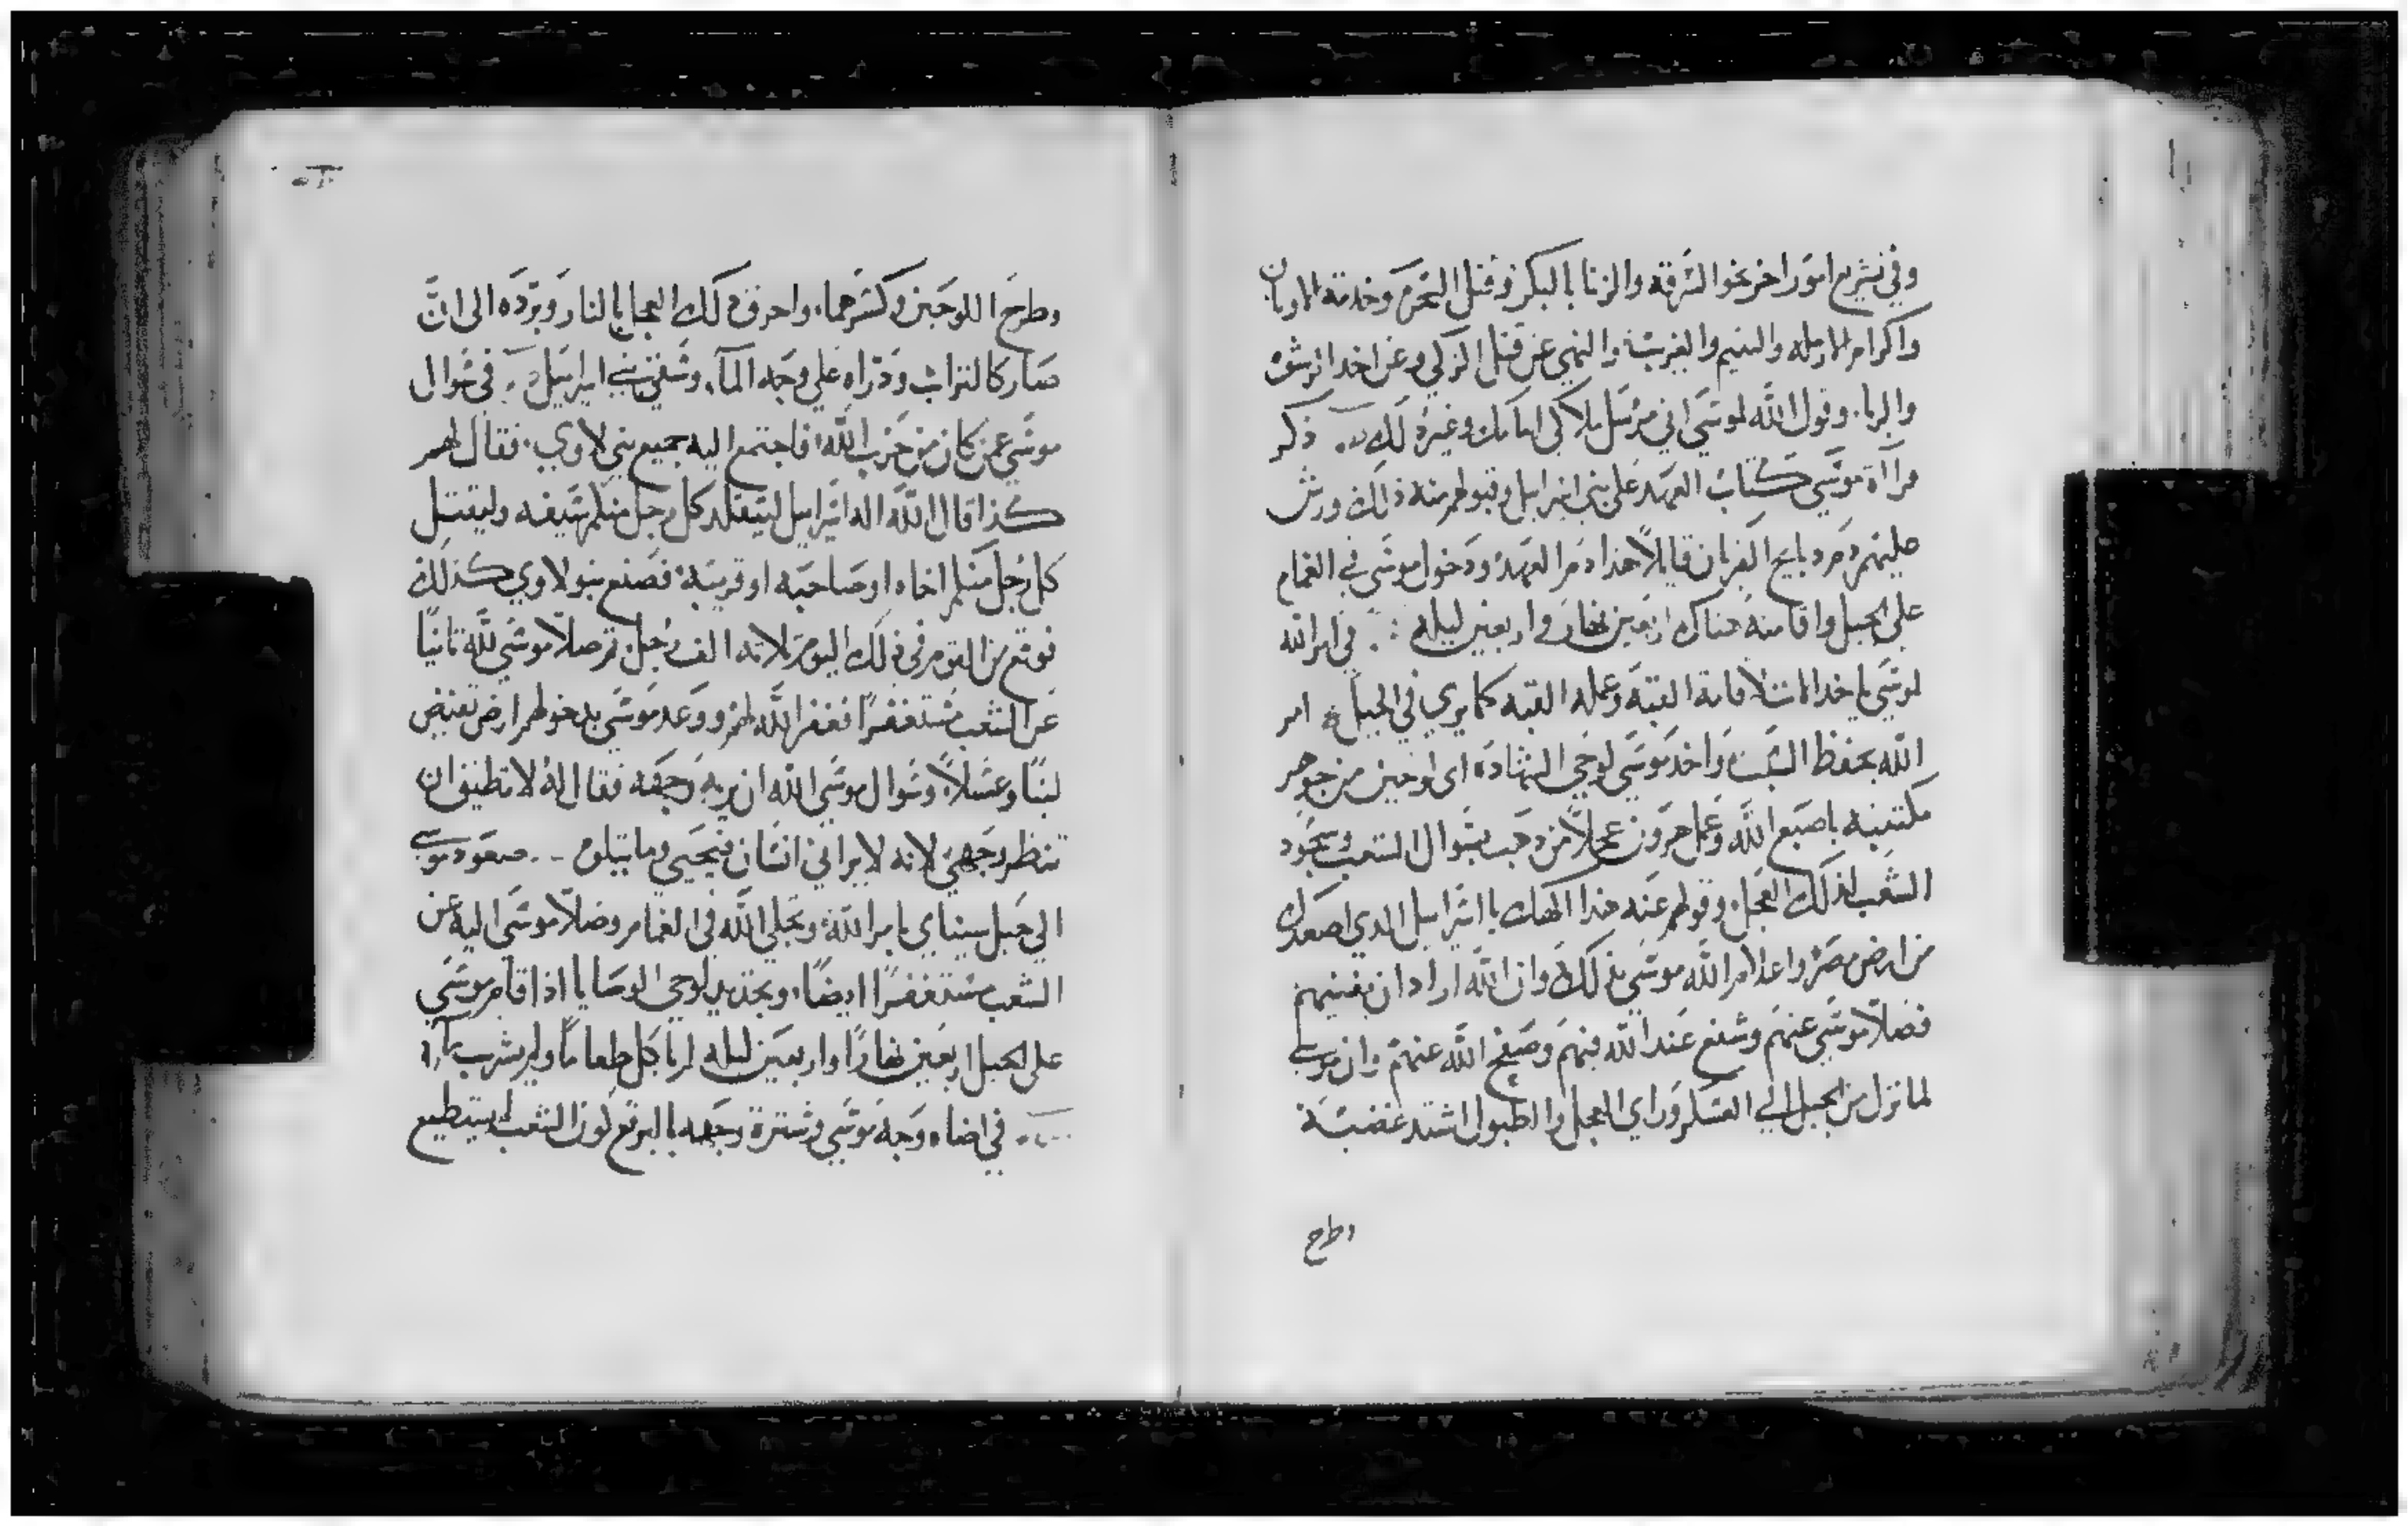 وفي تشريع امور اخر نحو السرقه والزنا بالبكر وقتل المحرم وخدمة الاوثان
واكرام الارمله واليتيم والغريب والنهي عن قتل الزكي وعن اخد الرشوه
والربا. وقول الله لموسي اني مرسل ملاكي امامك وغير ذلك ذكر
قرااة موسي كتاب العهد علي بني اسراييل وقبولهم منه ذالك ورش
عليهم دم دبايح القربان قايلاً هذا دم العهد ودخول موسي في الغمام
علي الجبل واقامته هناك اربعين نهار واربعين ليله في امر الله
لموسي باخد الالات لاقامة القبة وعمله القبه كما يري في الجبل امر
الله بحفظ السبت واخد موسي لوحي الشهادة اي لوحين من جوهر
مكتتبه باصبع الله وعمل هرون عجلاً من دهب بسوال الشعب وسجود
الشعب لذلك العجل. وقولهم عنه هذا الهك يا اسراييل الدي اصعدك
من ارض مصر واعلام الله موسي بذلك وان الله اراد ان يفنيهم
فصلا موسي عنهم وشفع عند الله فيهم وصفح الله عنهم وان موسي
لما نزل من الجبل الي العسكر وراي العجل والطبول اشتد غضبه
وطرح
وطرح اللوحين وكسرهما. واحرق ذلك العجل بالنار وبرده الي ان
صار كالتراب وذراه علي وجه الماء. وسقي بني اسراييل في سوال
موسي عمن كان من حزب الله فاجتمع اليه جميع بني لاوي. فقال لهم
كذا قال الله اله اسراييل ليتقلد كل رجل منكم سيفه وليقتل
كل رجل منكم اخاه او صاحبه او قريبه فصنع بنو لاوي كذلك
فوقع من القوم في ذلك اليوم تلاته الف رجل تم صلا موسي لله تانيًا
عن الشعب مستغفرًا فغفر الله لهم ووعد موسي بدخولهم ارض تفيض
لبنًا وعسلاً وسوال موسي الله ان يريه وجهه فقال له لا تطيق ان
تنظر وجهي لانه لا يراني انسان فيحيي وما يتلوه صعود موسي
الي جبل سيناي بامر الله وتجلي الله في الغمام وصلا موسي اليه عن
الشعب مستغفرًا ايضًا. وتجديد لوحي الوصايا اذ اقام موسي
علي الجبل اربعين نهارًا واربعين ليله لم ياكل طعامًا ولم يشرب ماء
في اضاه وجه موسي وسترة وجهه بالبرقع لون الشعب لم يستطيع